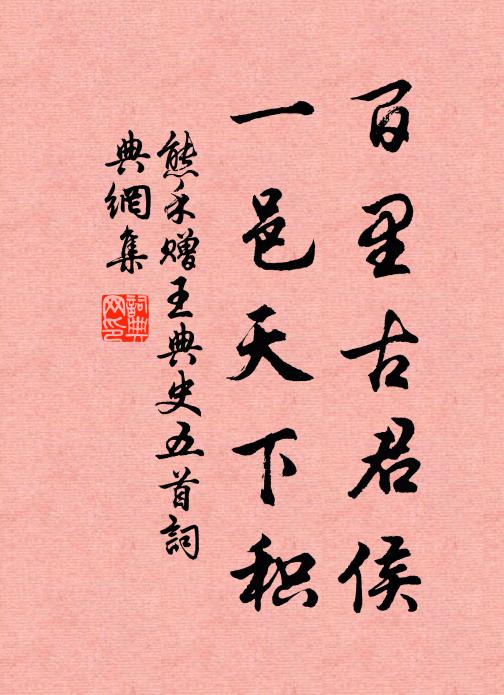 百里古君侯
一邑天下积
熊禾赠王典史五首詞
典網集
詞典网印